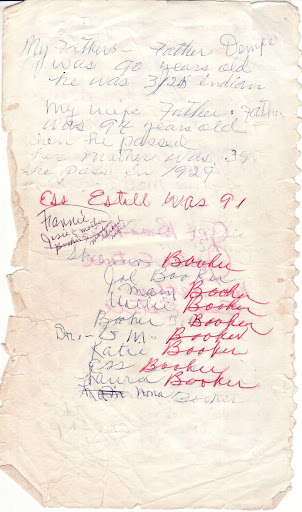 My Fathers - Father Dempo
was 90 years old
he was 3/2 indian
My wife Father: Father
was 94 years old
when he passed
her mother was 39
she pass in 1929
Ess Estell was 91
Fannie
Jessie's mother
Booker's
Booker
Joe Booker
Mary Booker
Willie Booker
Booker T Booker
Dr. - G. M. Booker
Katie Booker
Ess Booker
Laura Booker
Nona Booker